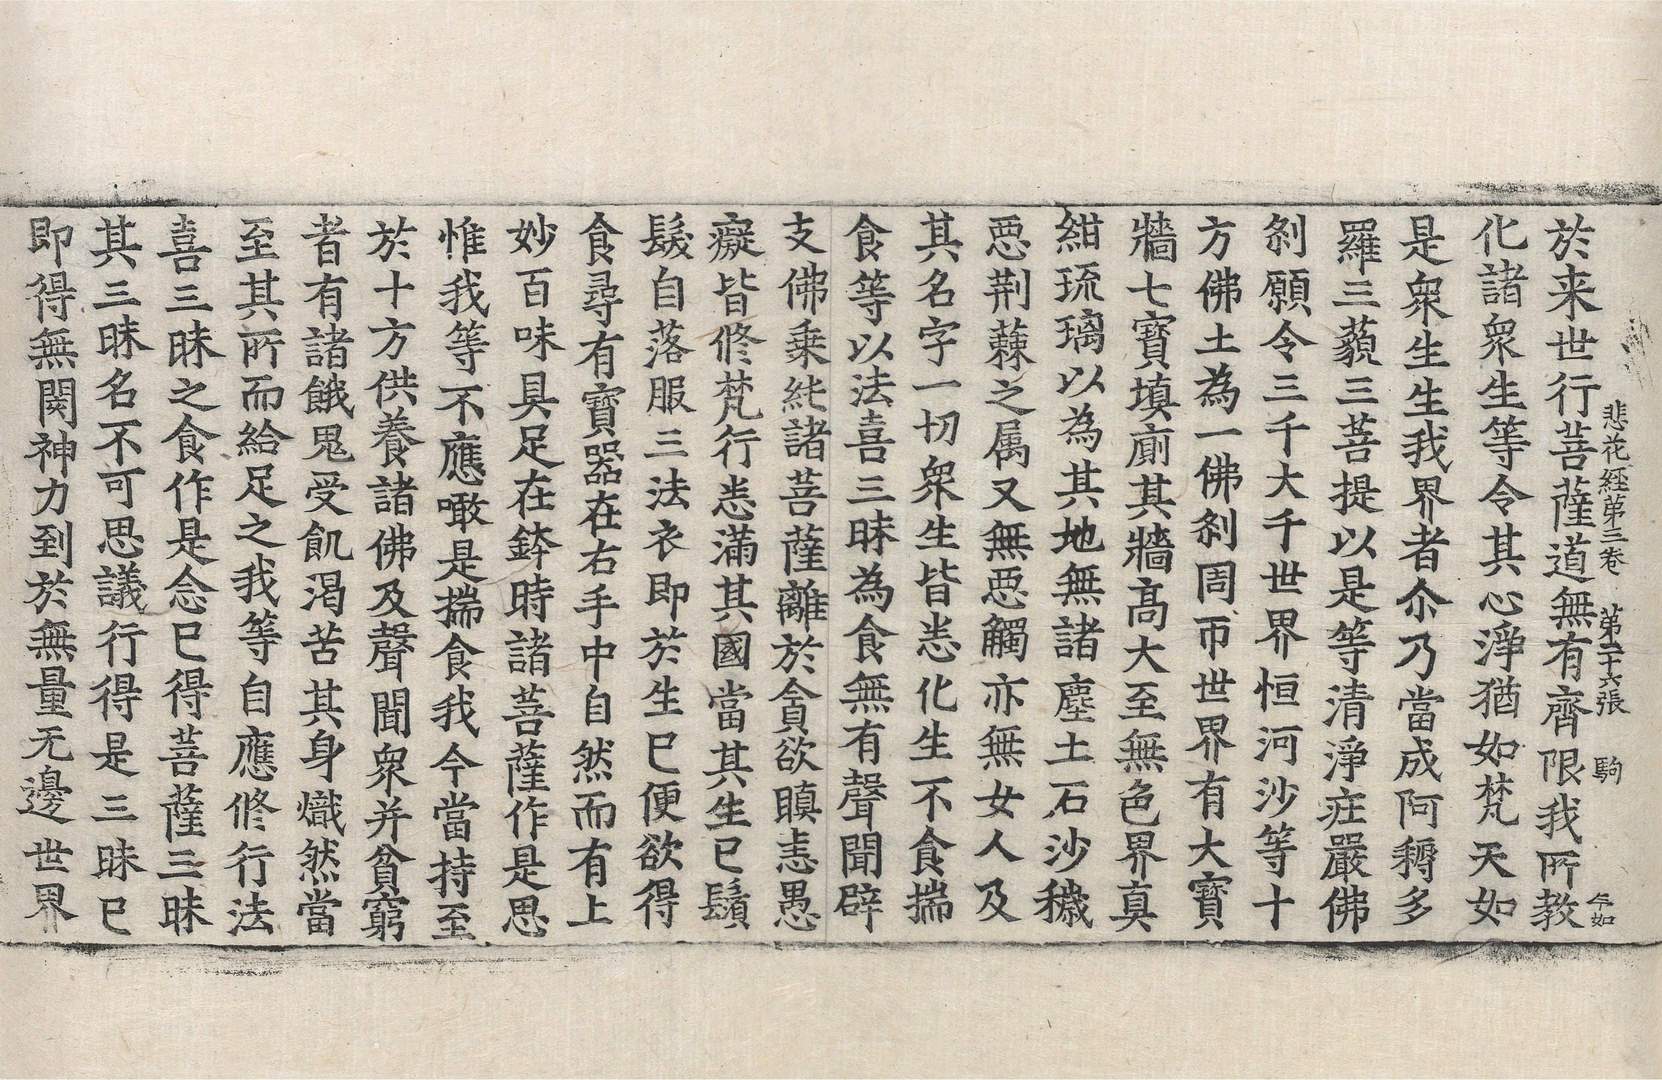 悲花經第三卷　第二十六張　駒
令如
於来世行菩薩道無有齊限我所教
化諸衆生等令其心淨猶如梵天如
是衆生生我界者尒乃當成阿耨多
羅三藐三菩提以是等清淨莊嚴佛
刹願令三千大千世界恒河沙等十
方佛土為一佛刹周帀世界有大寶
牆七寶填廁其牆高大至無色界真
紺琉璃以為其地無諸塵土石沙穢
惡荆蕀之属又無惡觸亦無女人及
其名字一切衆生皆悉化生不食揣
食等以法喜三昧為食無有聲聞辟
支佛乗純諸菩薩離於貪欲瞋恚愚
癡皆修梵行悉滿其國當其生已鬚
髮自落服三法衣即於生已便欲得
食尋有寶器在右手中自然而有上
妙百味具足在鉢時諸菩薩作是思
惟我等不應噉是揣食我今當持至
於十方供養諸佛及聲聞衆并貧窮
者有諸餓鬼受飢渴苦其身熾然當
至其所而給足之我等自應修行法
喜三昧之食作是念已得菩薩三昧
其三昧名不可思議行得是三昧已
即得無閡神力到於無量无邊世界